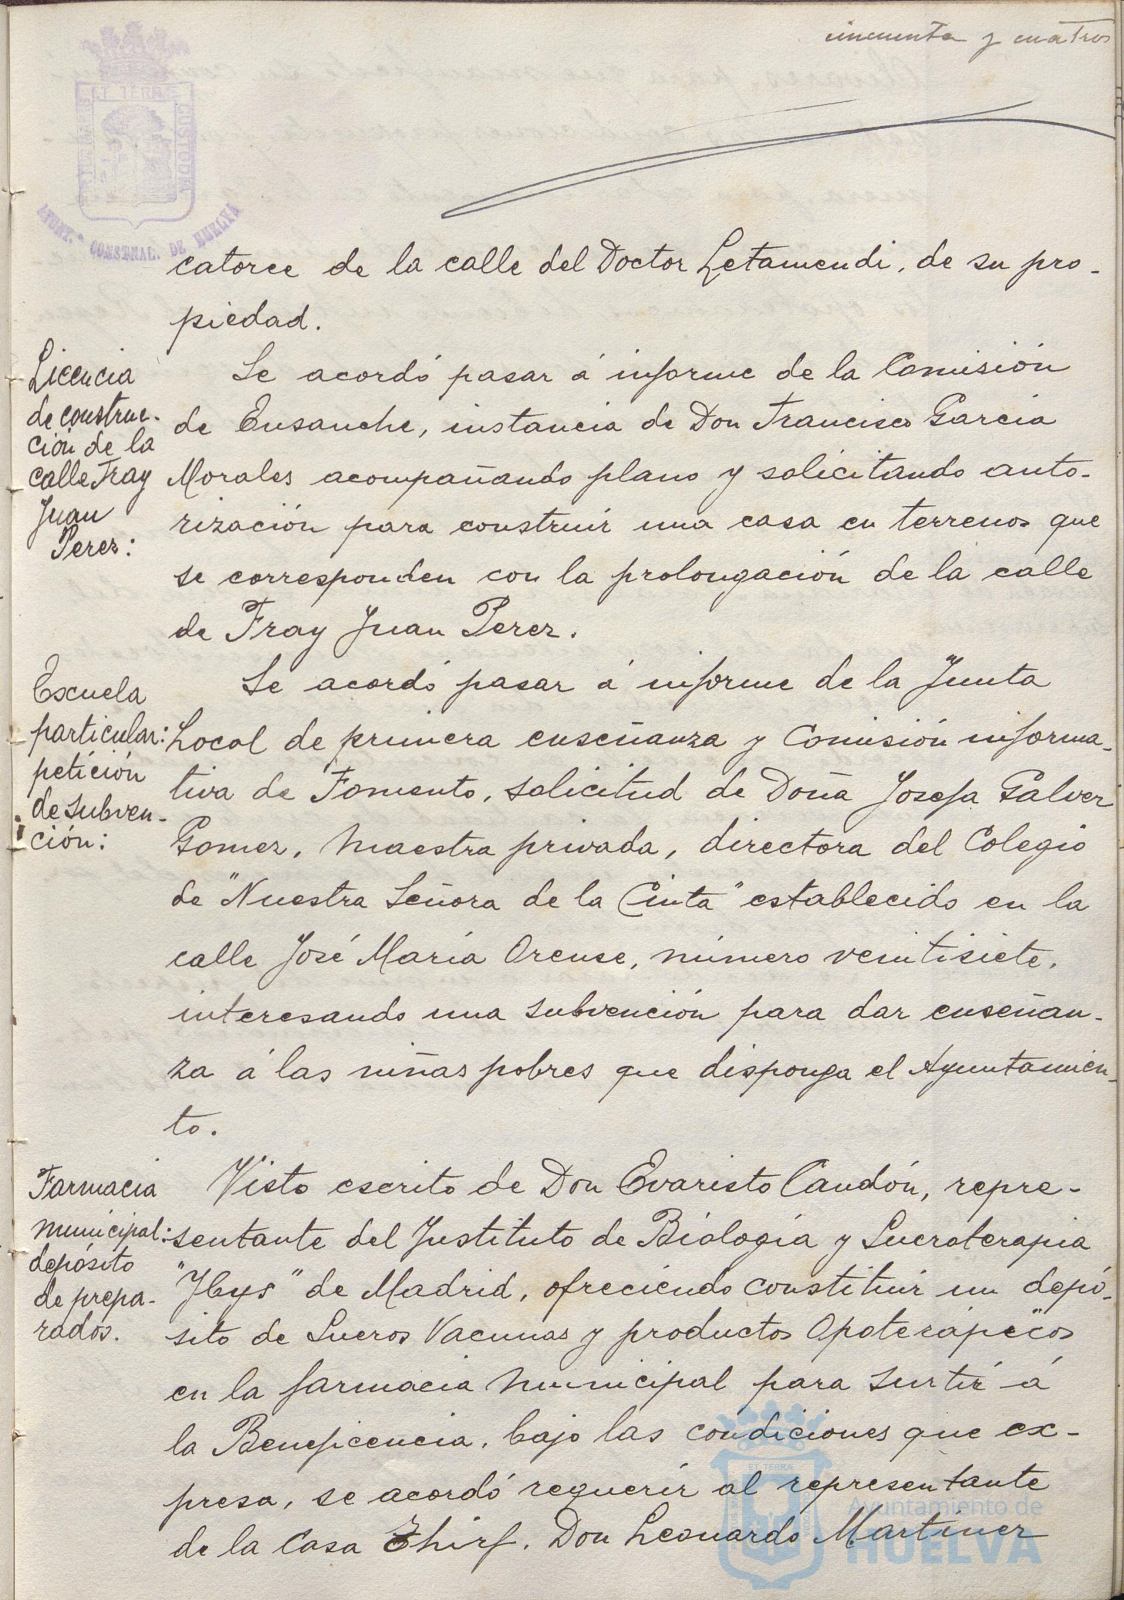 cincuenta y cuatro
ET TERRÆ CUSTODIA
AYUNT. CONSTNAL. DE HUELVA
catorce de la calle del Doctor Letamendi, de su pro-
piedad.
Licencia
de construc-
ción de la
calle Fray
Juan
Perez:
Se acordó pasar á informe de la Comisión
de Ensanche, instancia de Don Francisco Garcia
Morales acompañando plano y solicitando auto-
rización para construir una casa en terrenos que
se corresponden con la prolongación de la calle
de Fray Juan Perez.
Escuela
particular:
petición
de subven-
ción:
Se acordó pasar á informe de la Junta
Local de primera enseñanza y Comisión informa-
tiva de Fomento, solicitud de Doña Josefa Galvez
Gomez, Maestra privada, directora del Colegio
de "Nuestra Señora de la Cinta" establecido en la
calle José María Orense, número veintisiete,
interesando una subvención para dar enseñan-
za á las niñas pobres que disponga el Ayuntamien-
to.
Farmacia
municipal:
depósito
de prepa-
rados.
Visto escrito de Don Evaristo Candón, repre-
sentante del Instituto de Biología y Sueroterapia
"Ibys" de Madrid, ofreciendo constituir un depó-
sito de Sueros Vacunas y productos Opoterápicos
en la farmacia Municipal para surtir á
la Beneficencia, bajo las condiciones que ex-
presa, se acordó requerir al representante
de la Casa Thirf, Don Leonardo Martinez
ET TERRA
Ayuntamiento de
HUELVA